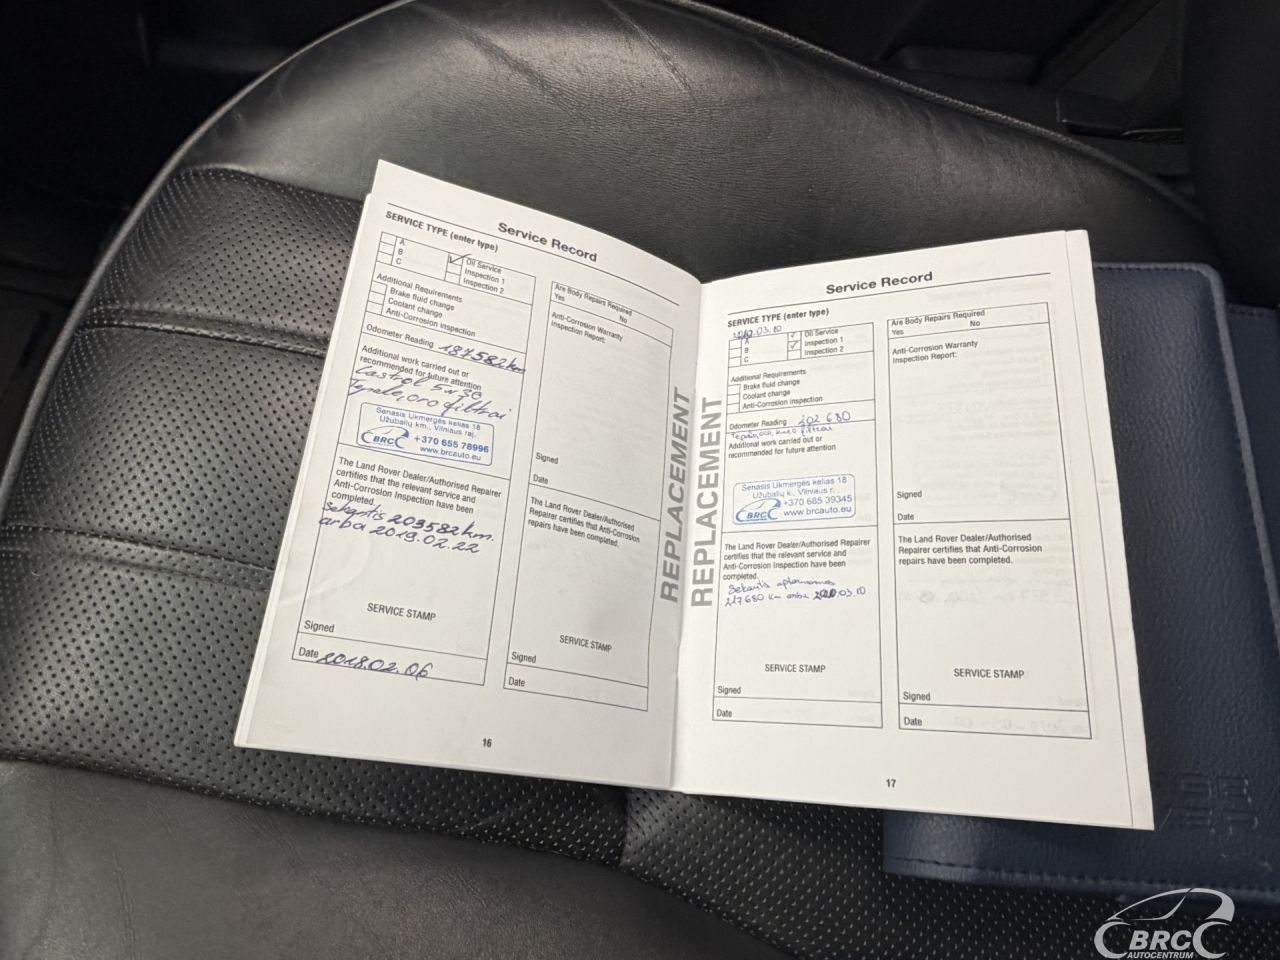 Service Record
SERVICE TYPE (enter type)
A
B
C
Oil Service
Inspection 1
Inspection 2
Additional Requirements
Brake fluid change
Coolant change
Anti-Corrosion inspection
Odometer Reading 187582km
Additional work carried out or
recommended for future attention
Castrol 5w30
Tepalo, oro filtrai
Senasis Ukmergės kelias 18
Užubalių km., Vilniaus raj.
BRC +370 655 78996
www.brcauto.eu
The Land Rover Dealer/Authorised Repairer
certifies that the relevant service and
Anti-Corrosion Inspection have been
completed.
Sekantis 203582km.
arba 2019.02.22
SERVICE STAMP
Signed
Date 2018.02.06
Are Body Repairs Required
Yes No
Anti-Corrosion Warranty
Inspection Report:
Signed
Date
The Land Rover Dealer/Authorised
Repairer certifies that Anti-Corrosion
repairs have been completed.
SERVICE STAMP
Signed
Date
REPLACEMENT
16
Service Record
SERVICE TYPE (enter type)
A
B
C
Oil Service
Inspection 1
Inspection 2
Additional Requirements
Brake fluid change
Coolant change
Anti-Corrosion inspection
Odometer Reading 202 680
Tepalų, oro, kuro filtrai
Additional work carried out or
recommended for future attention
Senasis Ukmergės kelias 18
Užubalių k., Vilniaus r.
BRC +370 685 39345
www.brcauto.eu
The Land Rover Dealer/Authorised Repairer
certifies that the relevant service and
Anti-Corrosion Inspection have been
completed.
Sekantis aptarnavimas
217680 km arba 2020.03.10
SERVICE STAMP
Signed
Date
Are Body Repairs Required
Yes No
Anti-Corrosion Warranty
Inspection Report:
Signed
Date
The Land Rover Dealer/Authorised
Repairer certifies that Anti-Corrosion
repairs have been completed.
SERVICE STAMP
Signed
Date
REPLACEMENT
17
BRC
AUTOCENTRUM